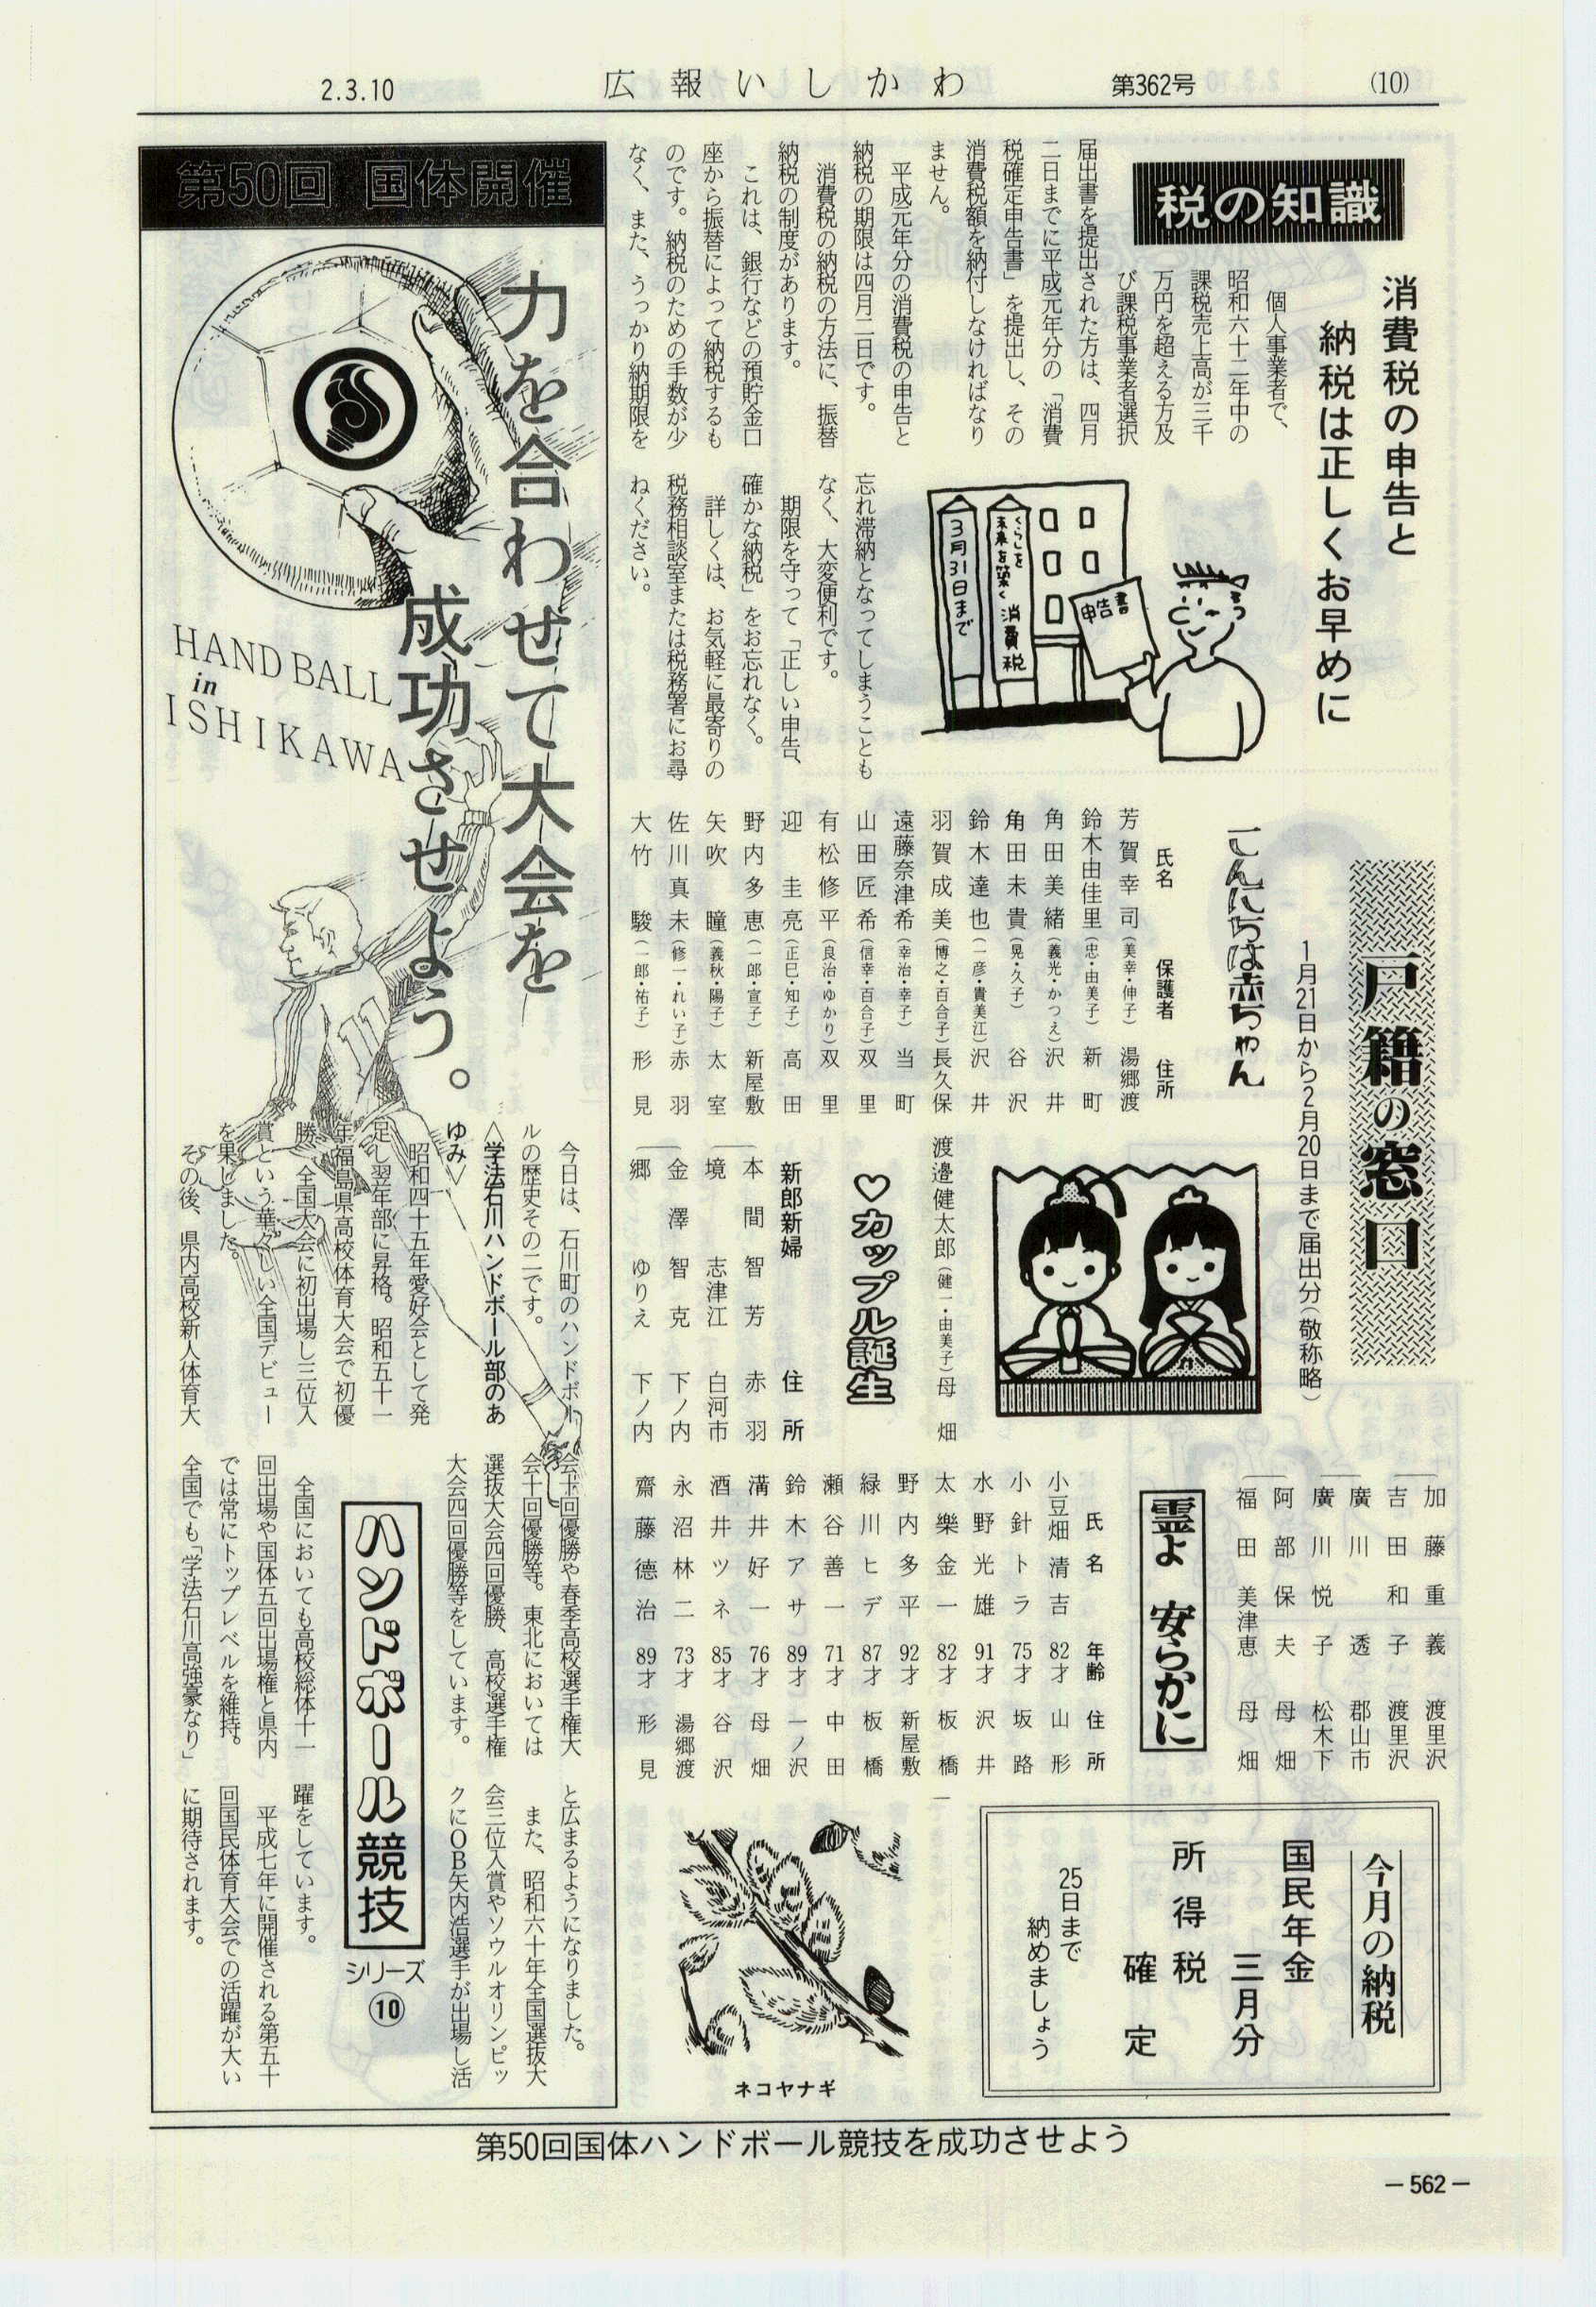 2.3.10
広報いしかわ
第362号
(10)
税の知識
消費税の申告と
納税は正しくお早めに
個人事業者で、
昭和六十二年中の
課税売上高が三千
万円を超える方及
び課税事業者選択
届出書を提出された方は、四月
二日までに平成元年分の「消費
税確定申告書」を提出し、その
消費税額を納付しなければなり
ません。
平成元年分の消費税の申告と
納税の期限は四月二日です。
消費税の納税の方法に、振替
納税の制度があります。
これは、銀行などの預貯金口
座から振替によって納税するも
のです。納税のための手数が少
なく、また、うっかり納期限を
忘れ滞納となってしまうことも
なく、大変便利です。
期限を守って「正しい申告、
確かな納税」をお忘れなく。
詳しくは、お気軽に最寄りの
税務相談室または税務署にお尋
ねください。
申告書
くらしを
未来を築く 消費税
3月31日まで
戸籍の窓口
1月21日から2月20日まで届出分(敬称略)
こんにちは赤ちゃん
氏名 保護者 住所
芳賀幸司(美幸・伸子)湯郷渡
鈴木由佳里(忠・由美子)新町
角田美緒(義光・かつえ)沢井
角田未貴(晃・久子)谷沢
鈴木達也(一彦・貴美江)沢井
羽賀成美(博之・百合子)長久保
遠藤奈津希(幸治・幸子)当町
山田匠希(信幸・百合子)双里
有松修平(良治・ゆかり)双里
迎圭亮(正巳・知子)高田
野内多恵(一郎・宣子)新屋敷
矢吹瞳(義秋・陽子)太室
佐川真未(修一・れい子)赤羽
大竹駿(一郎・祐子)形見
渡邉健太郎(健一・由美子)母畑
♡カップル誕生
新郎新婦 住所
本間智芳 赤羽
境志津江 白河市
金澤智克 下ノ内
郷ゆりえ 下ノ内
加藤重義 渡里沢
吉田和子 渡里沢
廣川透 郡山市
廣川悦子 松木下
阿部保夫 母畑
福田美津恵 母畑
霊よ 安らかに
氏名 年齢 住所
小豆畑清吉 82才 山形
小針トラ 75才 坂路
水野光雄 91才 沢井
太樂金一 82才 板橋
野内多平 92才 新屋敷
緑川ヒデ 87才 板橋
瀬谷善一 71才 中田
鈴木アサ 89才 一ノ沢
溝井好一 76才 母畑
酒井ツネ 85才 谷沢
永沼林二 73才 湯郷渡
齋藤德治 89才 形見
今月の納税
国民年金
三月分
所得税
確定
25日まで
納めましょう
ネコヤナギ
第50回 国体開催
力を合わせて大会を
成功させよう。
HAND BALL
in
ISHIKAWA
11
今日は、石川町のハンドボー
ルの歴史その二です。
〈学法石川ハンドボール部のあ
ゆみ〉
昭和四十五年愛好会として発
足し翌年部に昇格。昭和五十一
年福島県高校体育大会で初優
勝、全国大会に初出場し三位入
賞という華々しい全国デビュー
を果しました。
その後、県内高校新人体育大
会十回優勝や春季高校選手権大
会十回優勝等。東北においては
選抜大会四回優勝、高校選手権
大会四回優勝等をしています。
ハンドボール競技
シリーズ
⑩
全国においても高校総体十一
回出場や国体五回出場権と県内
では常にトップレベルを維持。
全国でも「学法石川高強豪なり」
と広まるようになりました。
また、昭和六十年全国選抜大
会三位入賞やソウルオリンピッ
クにOB矢内浩選手が出場し活
躍をしています。
平成七年に開催される第五十
回国民体育大会での活躍が大い
に期待されます。
第50回国体ハンドボール競技を成功させよう
－562－